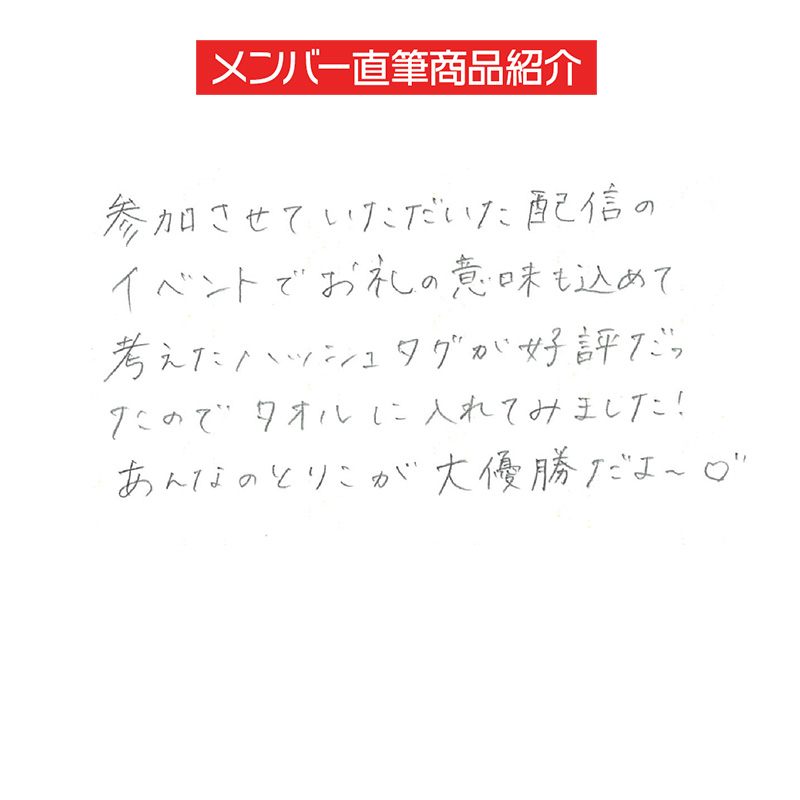 メンバー直筆商品紹介
参加させていただいた配信の
イベントでお礼の意味も込めて
考えたハッシュタグが好評だっ
たのでタオルに入れてみました!
あんなのとりこが大優勝だよ〜♡”